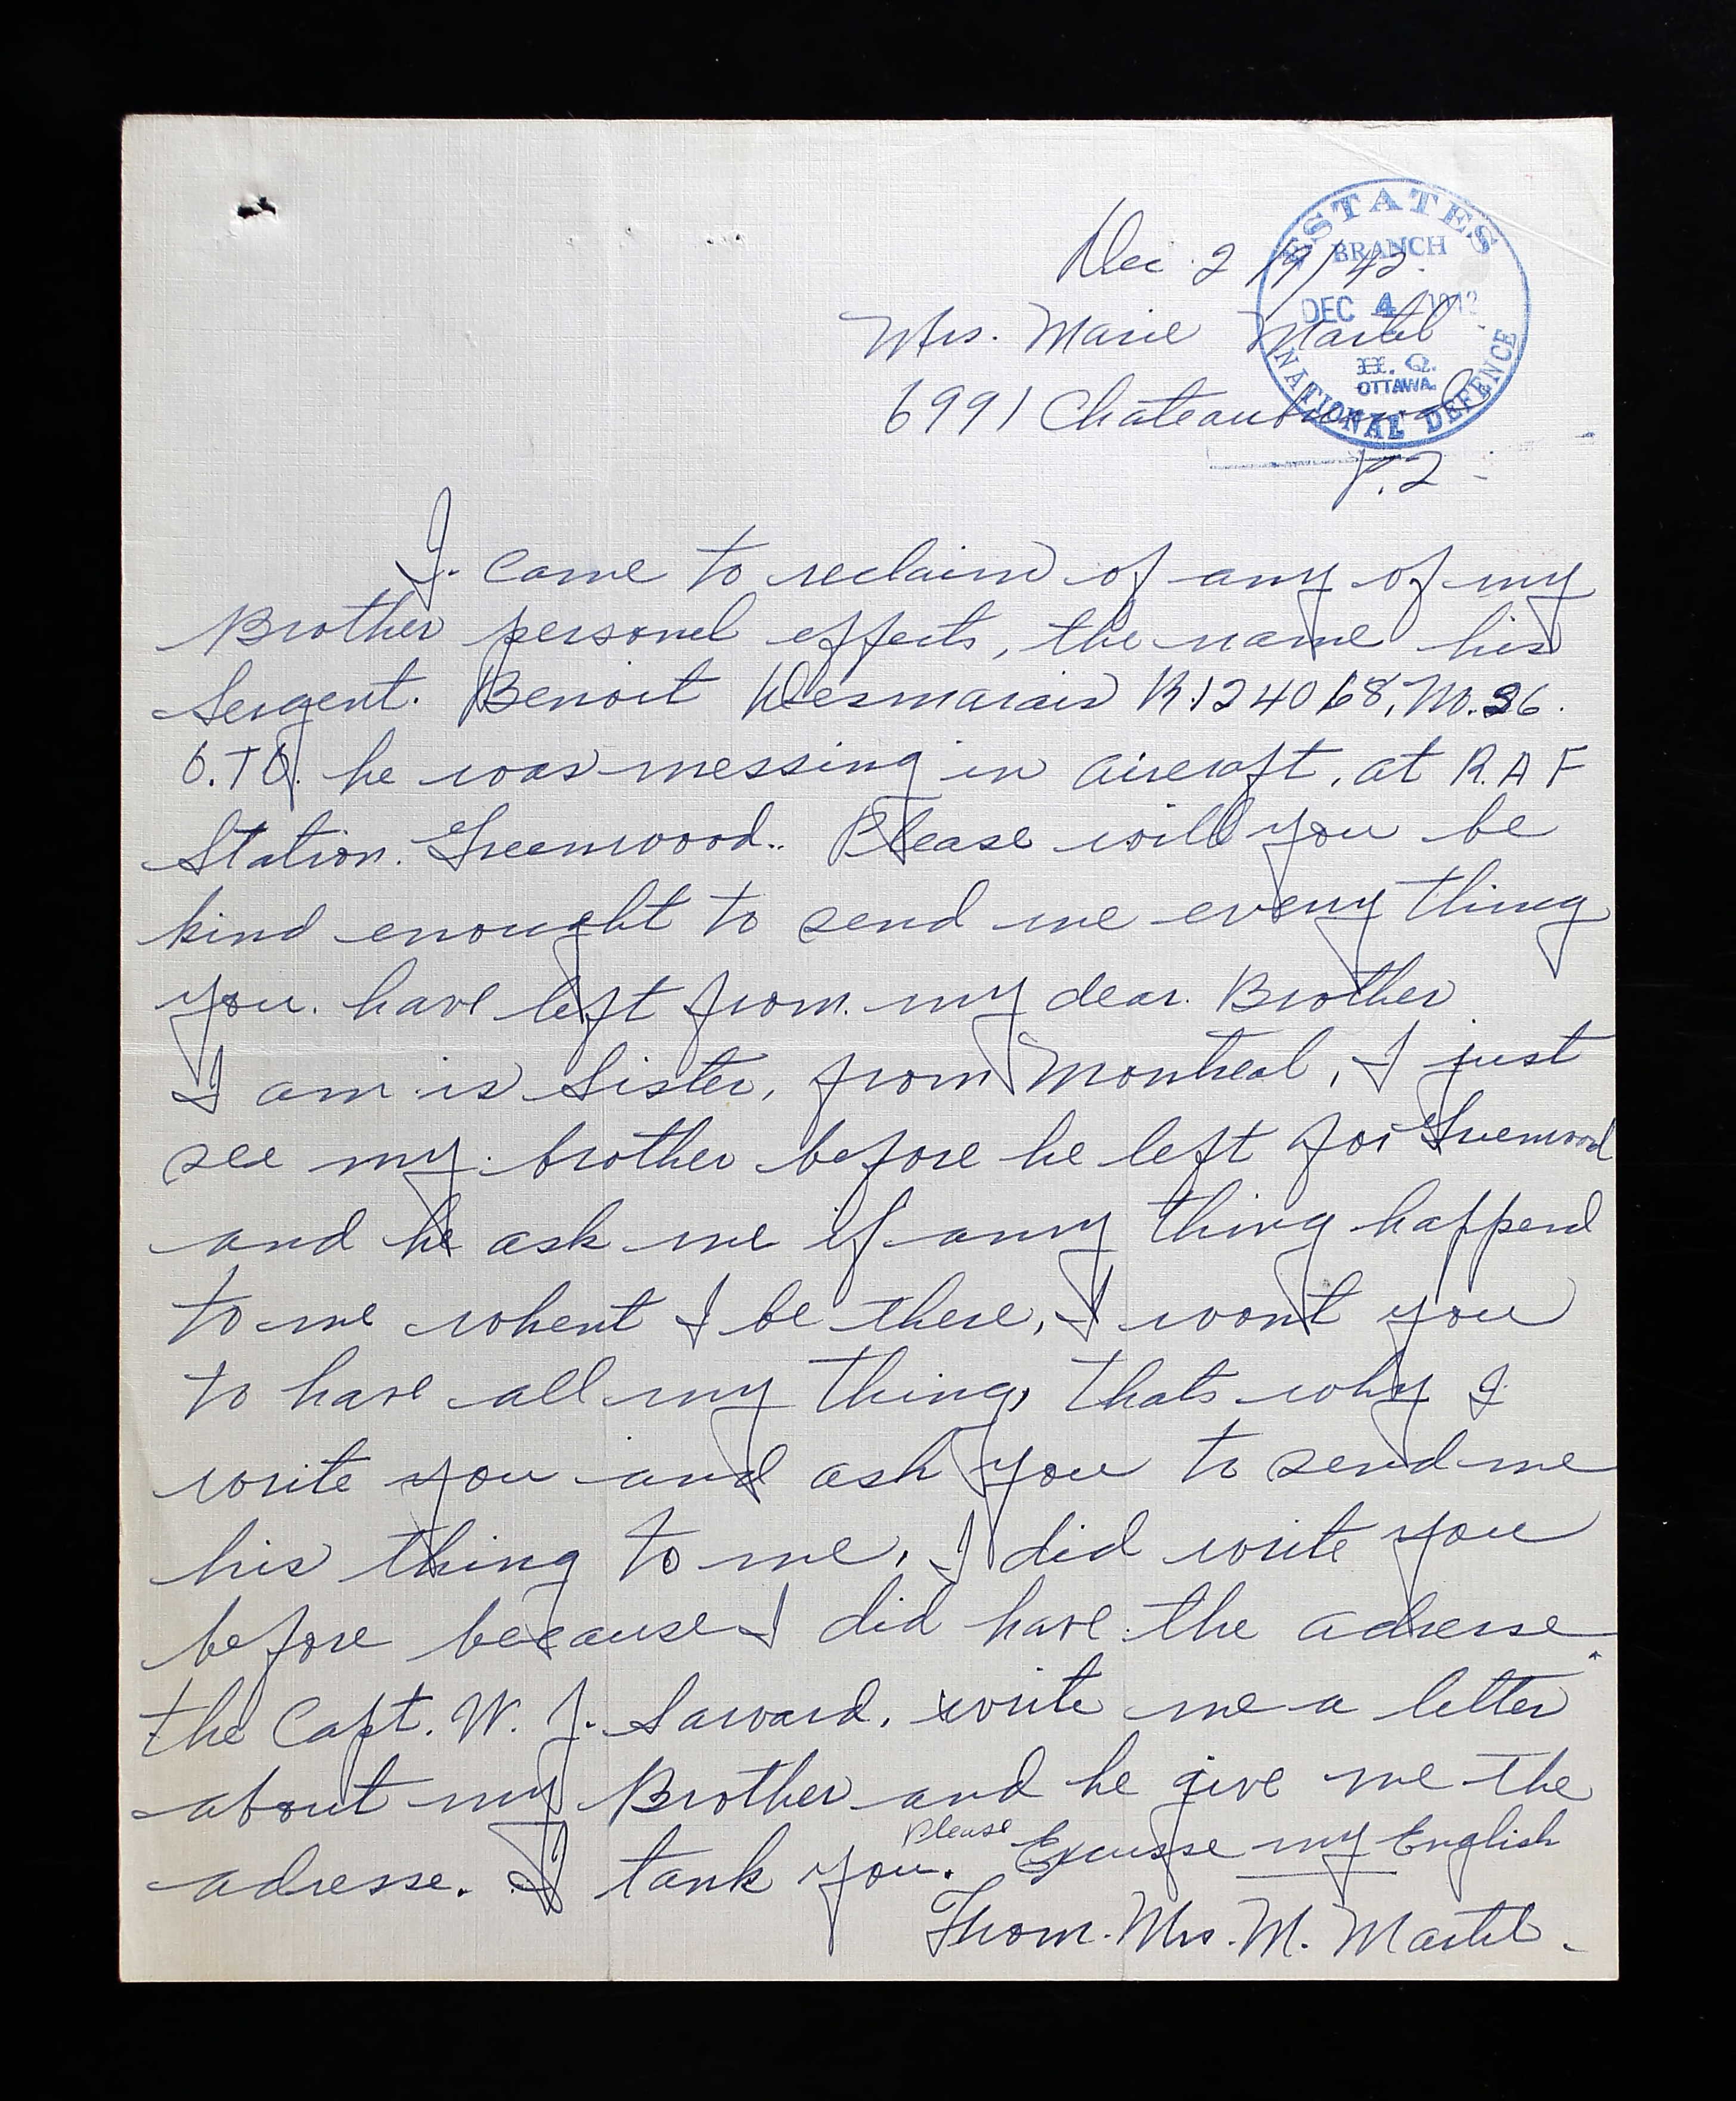 ESTATES
BRANCH
DEC 4 1942
H. Q.
OTTAWA.
NATIONAL DEFENCE
Dec. 2 /42.
Mrs. Marie Martel
6991 Chateaubriand
I. Came to reclaim of any of my
Brother personel effects, the name his
Sergent. Benoit Desmarais R.124068, No. 36.
O.T.U. he was messing in aircraft, at R.A F
Station. Greenwood.. Please will you be
kind enought to send me every thing
you. have left from. my dear. Brother
I am is Sister, from Montreal, I just
see my. brother before he left for Greenwood
and he ask me if any thing happend
to me whent I be there, I wont you
to have all my thing, thats why I
write you and ask you to send me
his thing to me, I did write you
before because I did have the adresse.
the Capt. W. J. Saward, write me a letter
about my Brother and he give me the
adresse. I tank you. Please Excusse my English
From. Mrs. M. Martel.